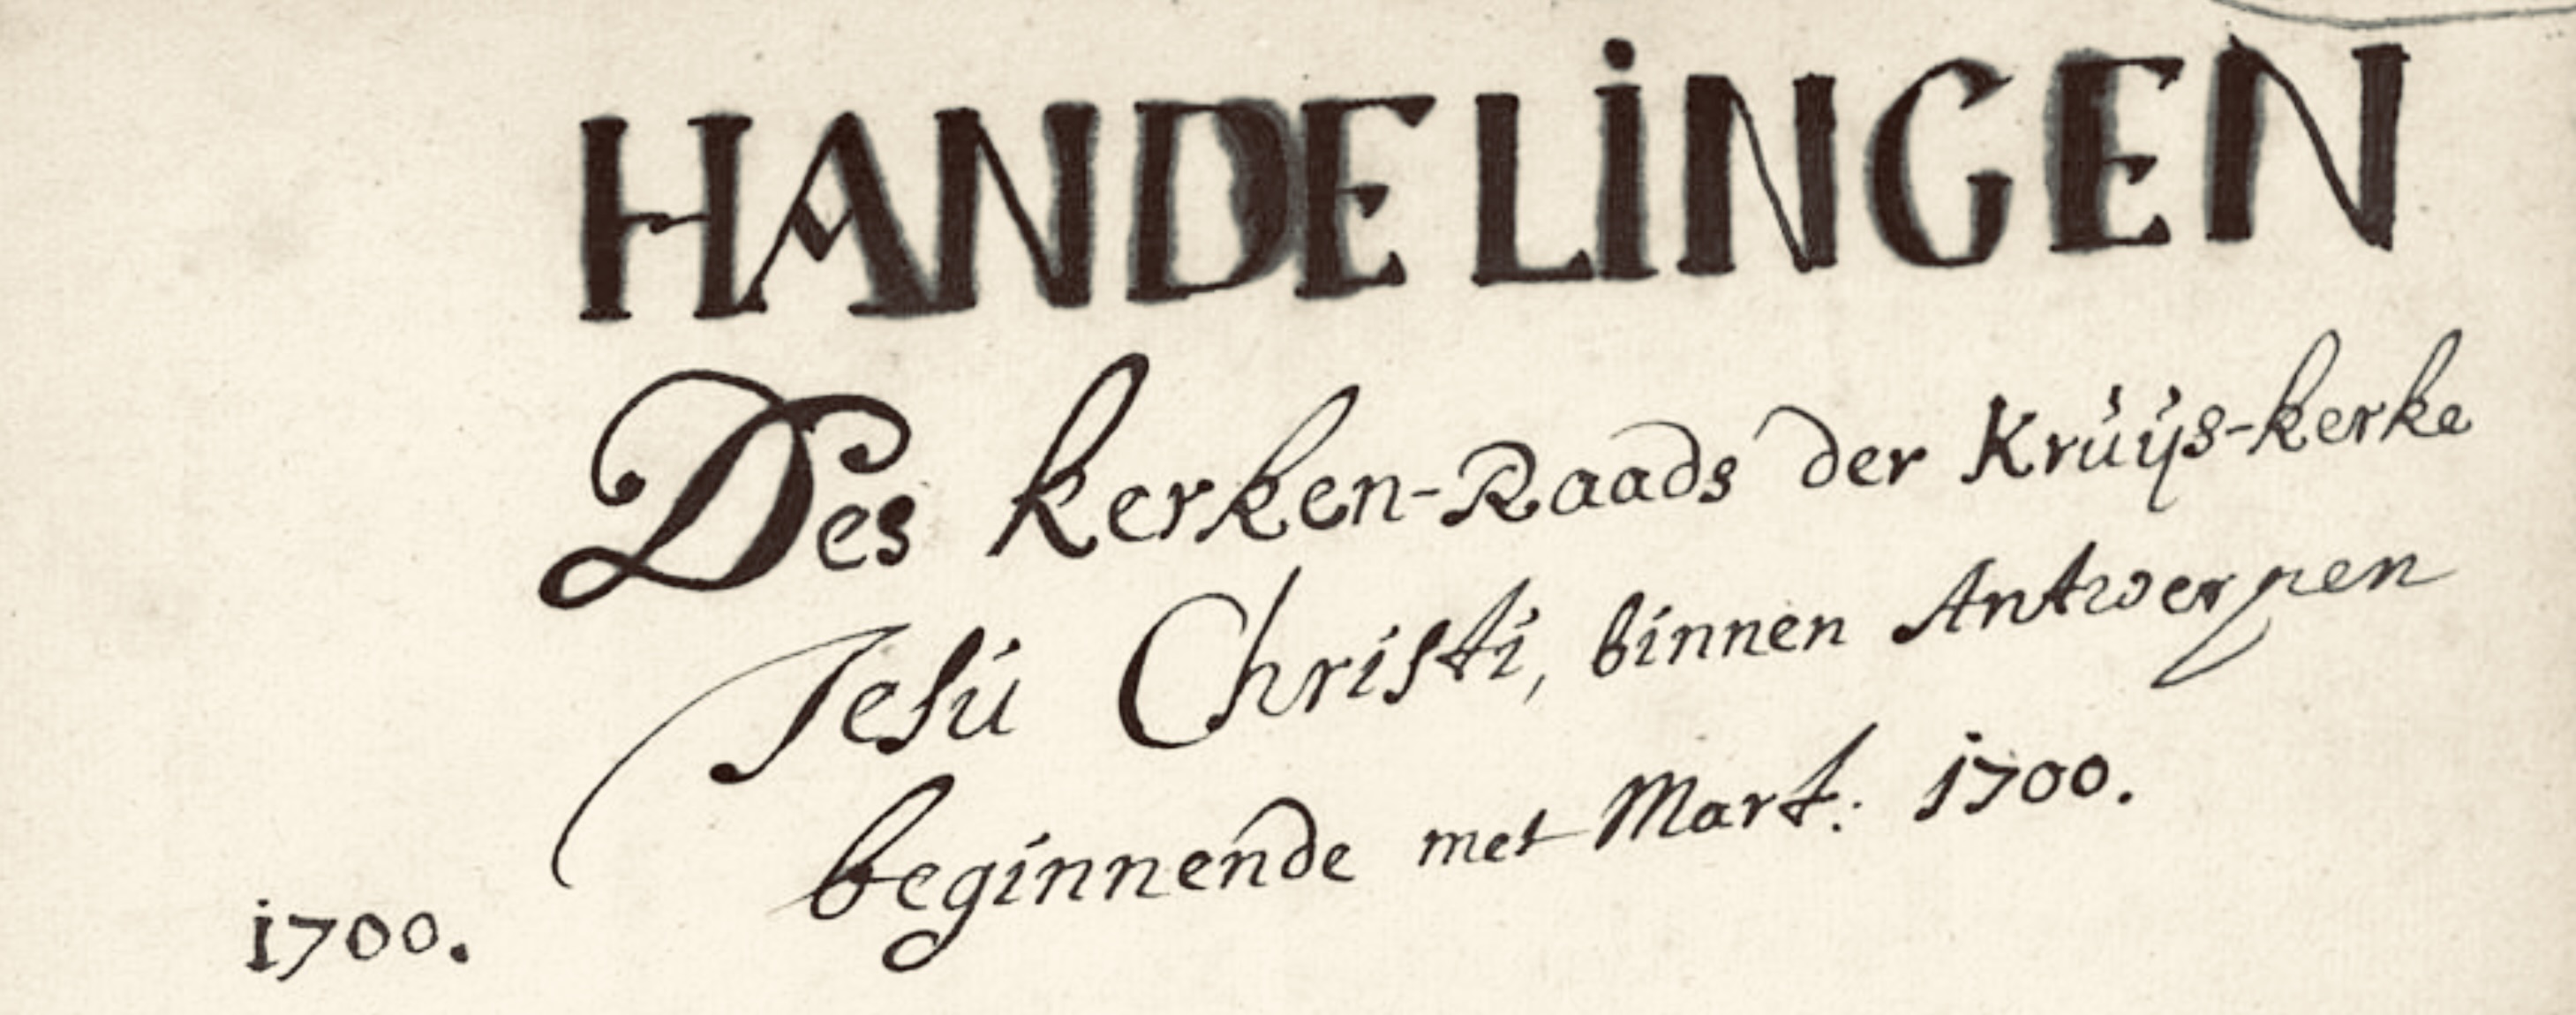 HANDELiNGEN
Des kerken-Raads der Krúÿs-kerke
Jesú Christi, binnen Antwerpen
beginnende met Mart: 1700.
1700.